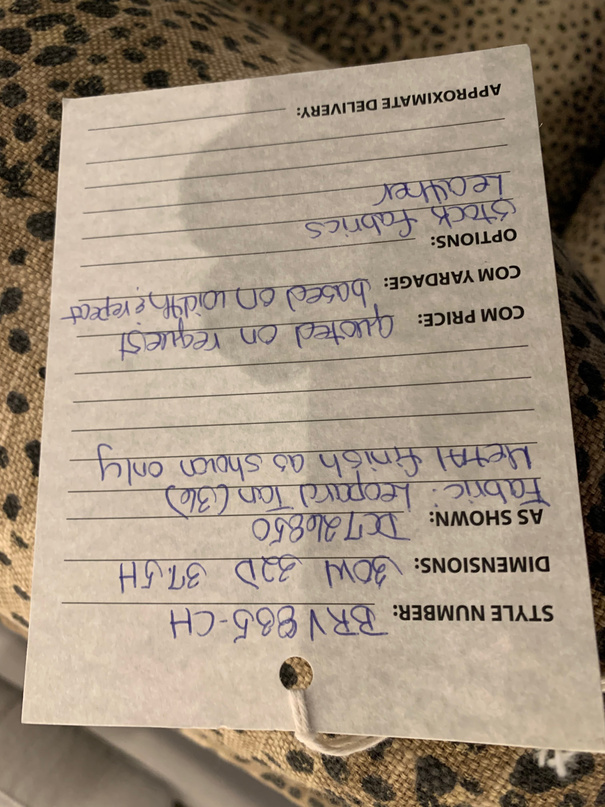 STYLE NUMBER: BRV885-CH
DIMENSIONS: 30W 32D 37.5H
AS SHOWN: DCT26850
Fabric: Leopard Tan (36)
Metal finish as shown only
COM PRICE: quoted on request
COM YARDAGE: based on width & repeat
OPTIONS:
Stock fabrics
Leather
APPROXIMATE DELIVERY: